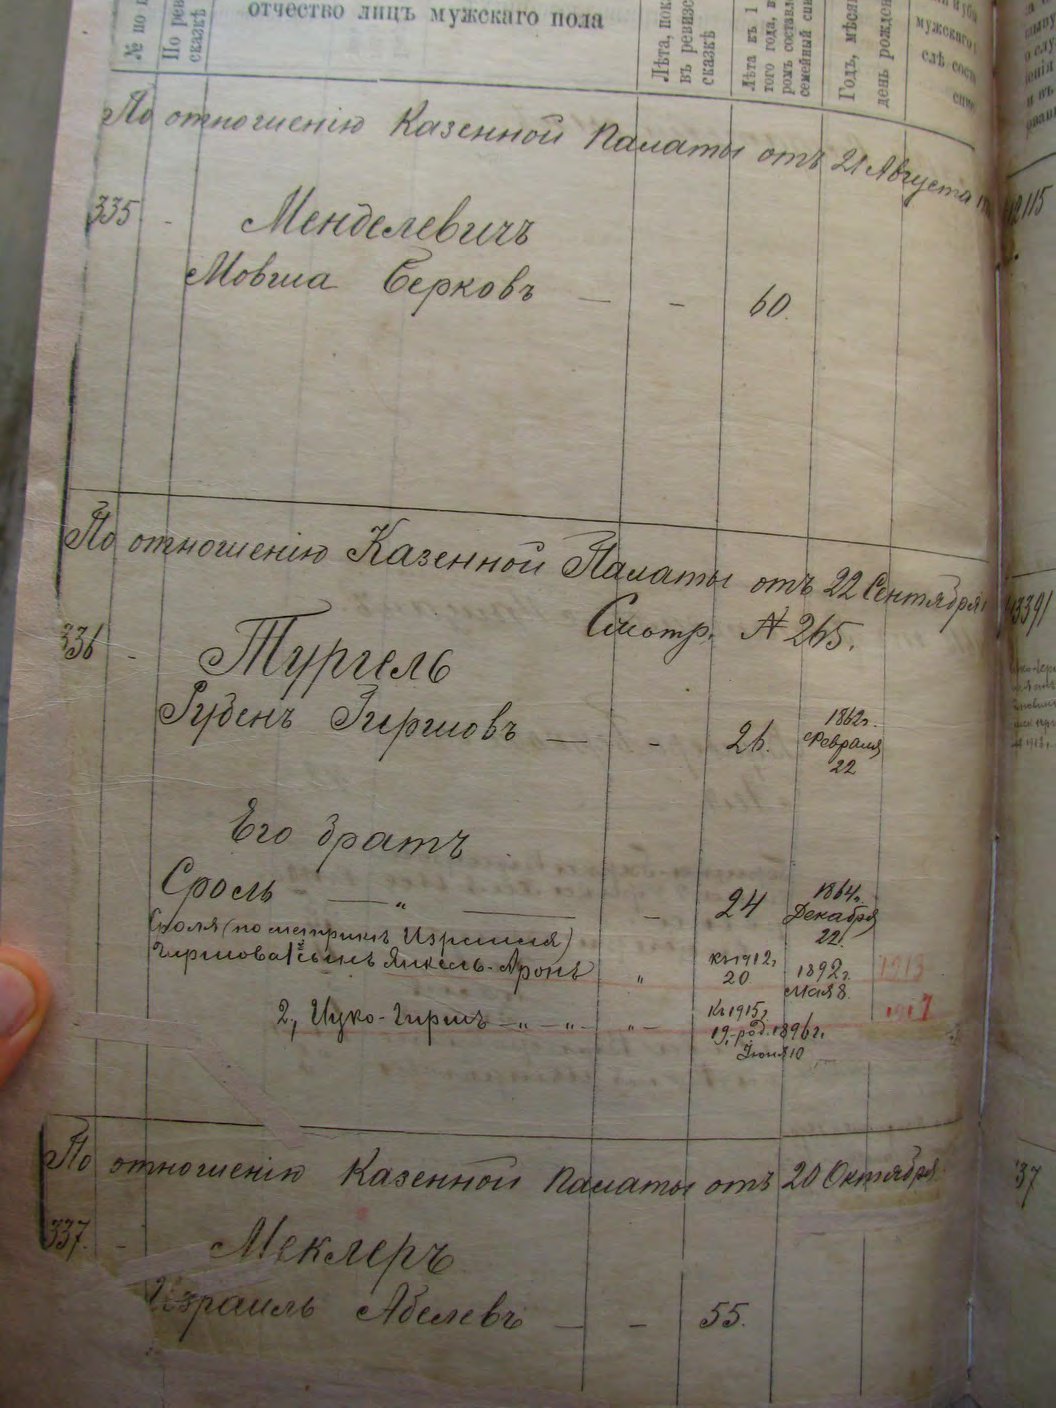 № по
По рев
сказкѣ
отчество лицъ мужскаго пола
Лѣта, пок
въ ревизс
сказкѣ
Лѣта къ 1
того года, в
ромъ составл
семейный спи
Годъ, мѣся
день рожден
мужскаго
По отношенію Казенной Палаты отъ 21 Августа
335 - Менделевичъ
Мовша Берковъ — - 60.
По отношенію Казенной Палаты отъ 22 Сентября
Смотр. № 265.
336 - Тургель
Рубенъ Гиршовъ — - 26. 1862 г. Февраля 22
Его братъ
Сроль — „ — - 24 1864 г. Декабря 22.
Сроля (по метрикѣ Израиля)
Гиршова 1, сынъ Янкель-Аронъ „ къ 1912 г. 20 1892 г. Мая 8. 1913
2, Ицко-Гиршъ — „ — „ — „ — Къ 1915 г. 19, род. 1896 г. Іюня 10 1917
По отношенію Казенной Палаты отъ 20 Октября
337. - Меклеръ
Израиль Абелевъ — - 55.
115
3391
37